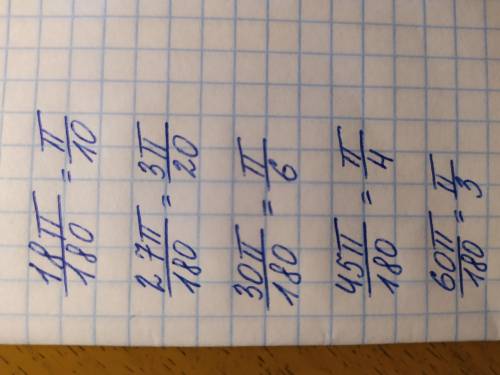 18π/180 = π/10
27π/180 = 3π/20
30π/180 = π/6
45π/180 = π/4
60π/180 = π/3